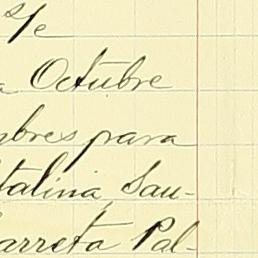 s/e
a Octubre
mbres para
talina, Sau-
arreta Pal-